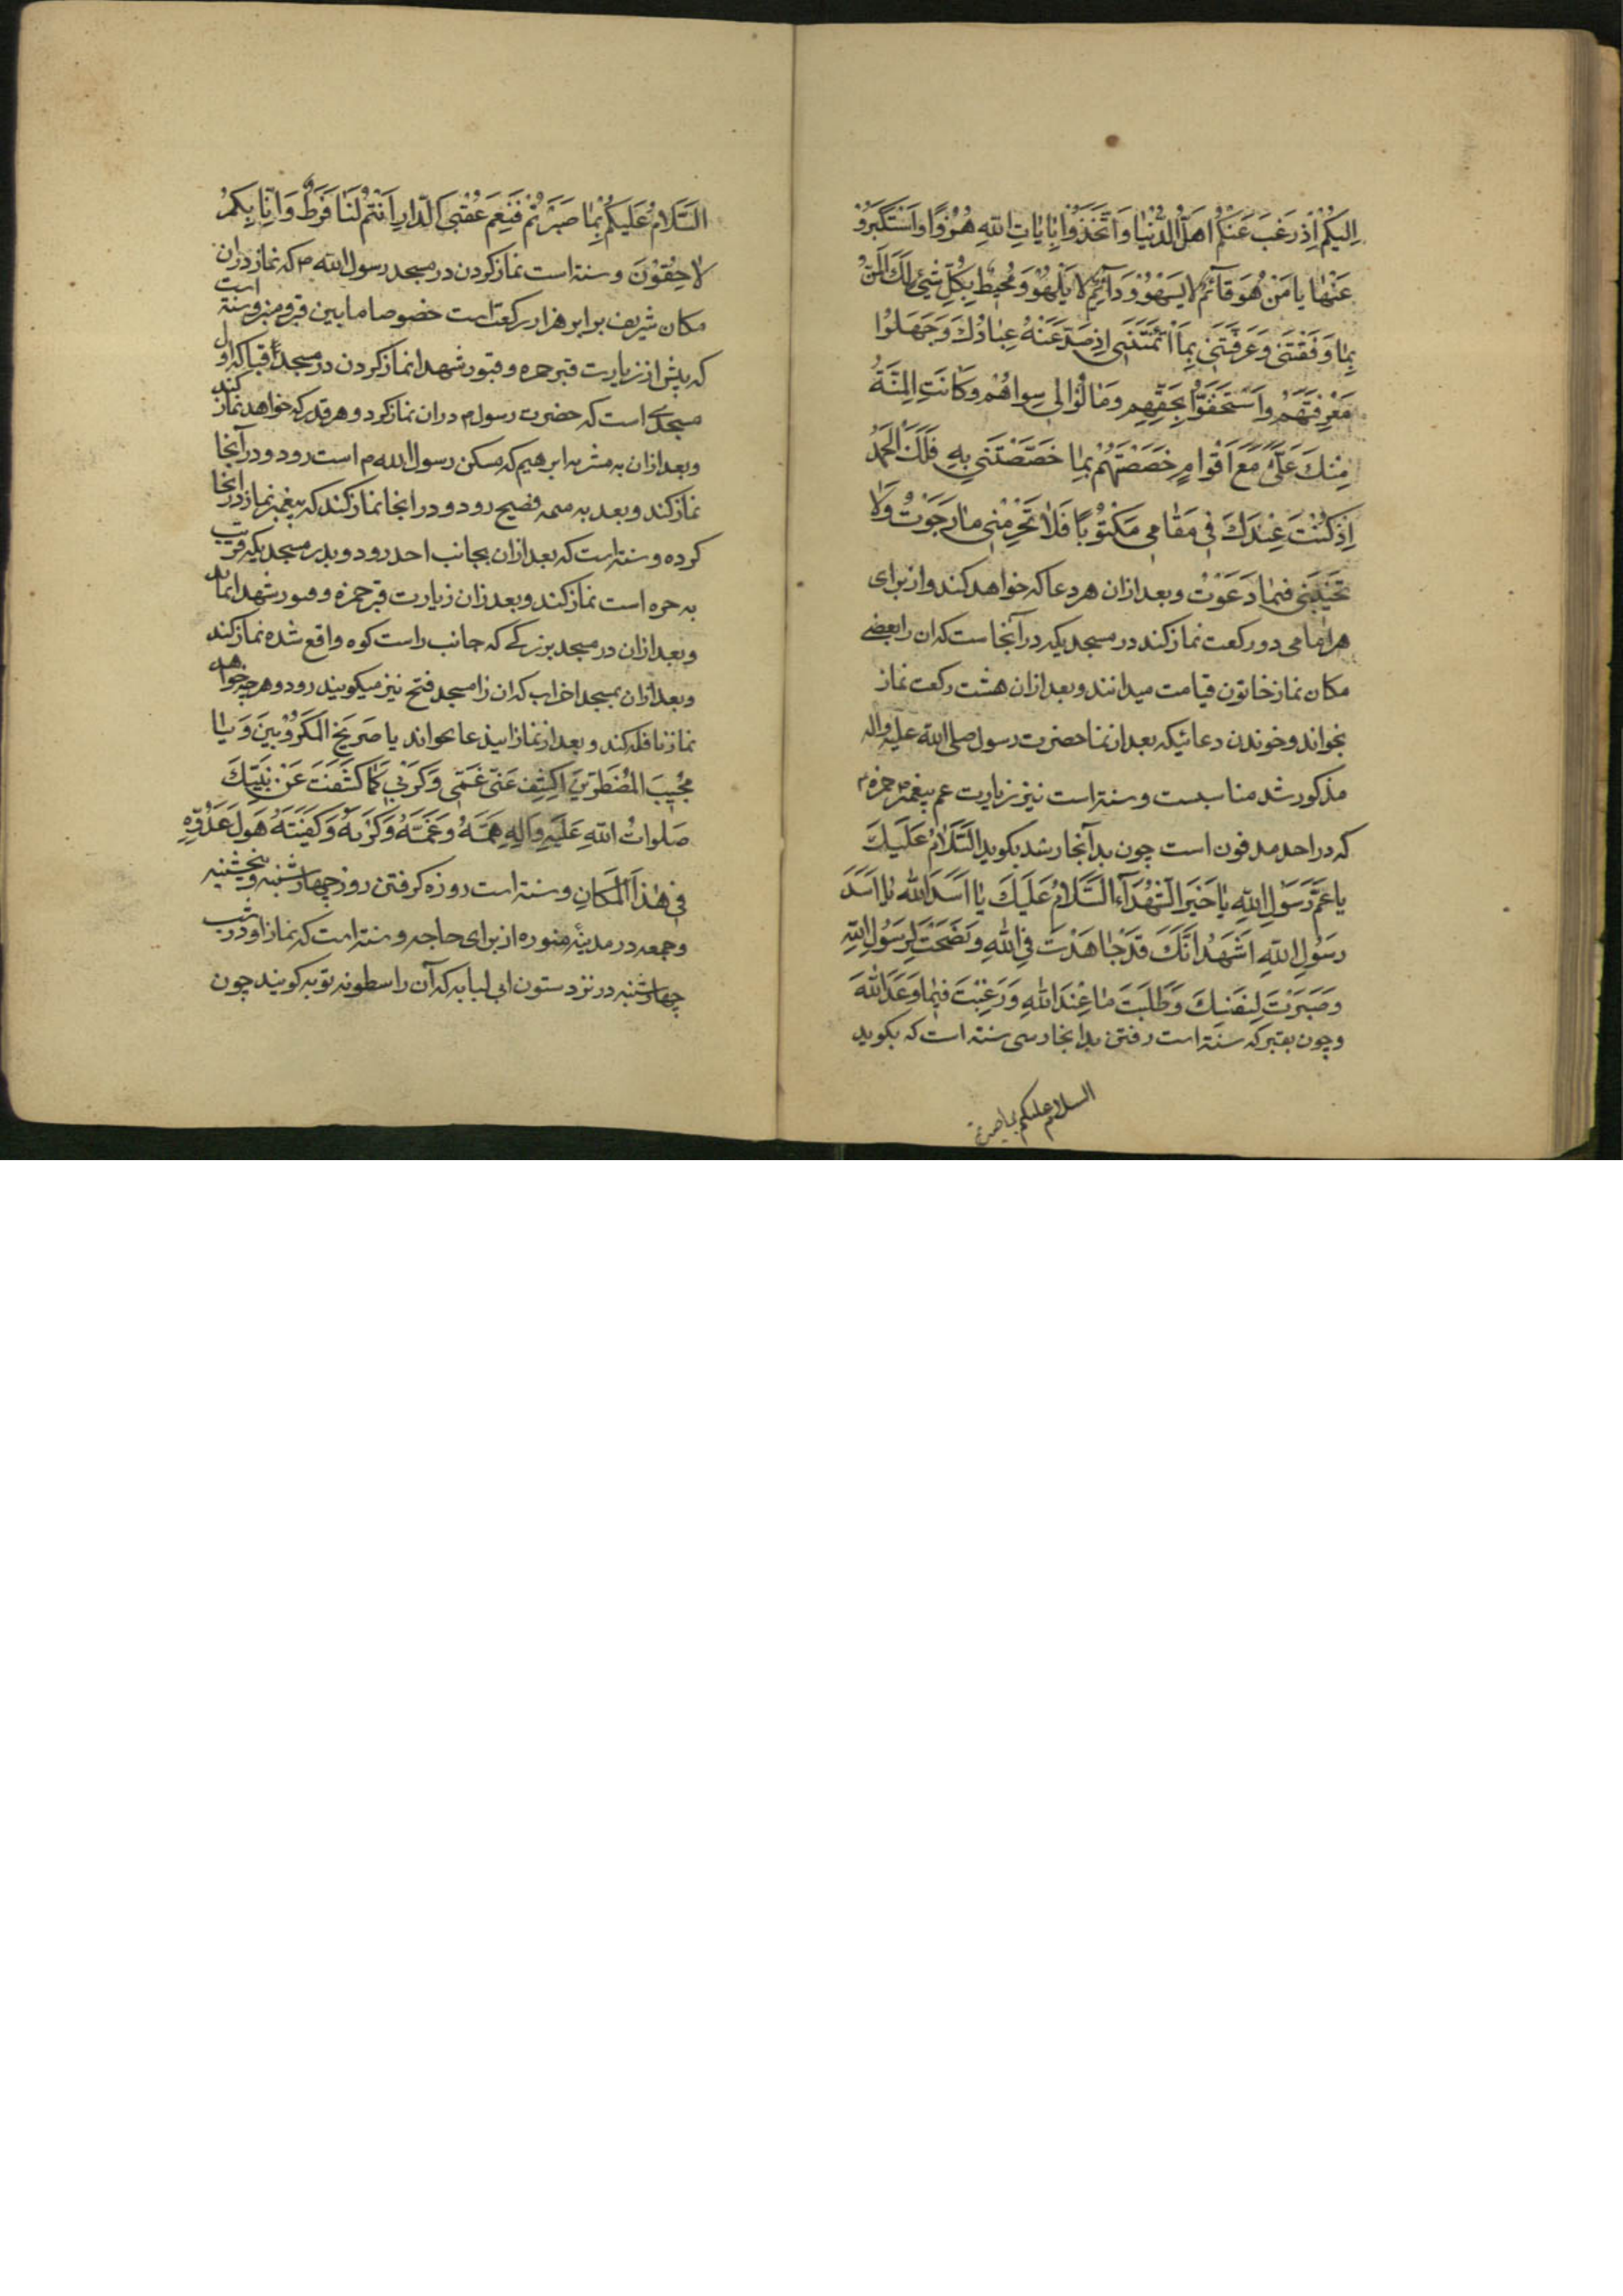 اِلَیْکُمْ اِذْ رَغِبَ عَنْکُمْ اَهْلُ الدُّنْیَا وَاتَّخَذُوا اٰیَاتِ اللّٰهِ هُزُوًا وَاسْتَکْبَرُوْ
عَنْهَا یَا مَنْ هُوَ قَائِمٌ لَا یَسْهُوْ وَدَائِمٌ لَا یَلْهُوْ وَمُحِیْطٌ بِکُلِّ شَیْئٍ لَکَ الْمَنُّ
بِمَا وَفَّقْتَنِیْ وَعَرَّفْتَنِیْ بِمَا ائْتَمَنْتَنِیْ اِذْ صَدَّ عَنْهُ عِبَادُکَ وَجَهِلُوْا
مَعْرِفَتَهُمْ وَاسْتَخَفُّوْا بِحَقِّهِمْ وَمَالُوْا اِلٰی سِوَاهُمْ وَکَانَتِ الْمِنَّةُ
مِنْکَ عَلَیَّ مَعَ اَقْوَامٍ خَصَصْتَهُمْ بِمَا خَصَصْتَنِیْ بِهِ فَلَکَ الْحَمْدُ
اِذْ کُنْتُ عِنْدَکَ فِیْ مَقَامِیْ مَکْتُوْبًا فَلَا تَحْرِمْنِیْ مَا رَجَوْتُ وَلَا
تُخَیِّبْنِیْ فِیْمَا دَعَوْتُ وبعد ازان هر دعا که خواهد کند واز برای
هر امامی دو رکعت نماز کند در مسجدیکه در آنجاست که ان را بعضی
مکان نماز خاتون قیامت میدانند وبعد ازان هشت رکعت نماز
بخواند وخوندن دعائیکه بعد از نماز حضرت رسول صلی الله علیه واله
مذکور شد مناسبست و سنة است نیز زیارت عم پیغمبر م حمزه
که در احد مدفون است چون بدآنجا رسد بکوید اَلسَّلَامُ عَلَیْکَ
یَا عَمَّ رَسُوْلِ اللهِ یَا خَیْرَ الشُّهَدَآءِ السَّلَامُ عَلَیْکَ یَا اَسَدَ اللهِ یَا اَسَدَ
رَسُوْلِ اللهِ اَشْهَدُ اَنَّکَ قَدْ جَاهَدْتَ فِی اللهِ وَنَصَحْتَ لِرَسُوْلِ اللهِ
وَصَبَرْتَ لِنَفْسِکَ وَطَلَبْتَ مَا عِنْدَ اللهِ وَرَغِبْتَ فِیْمَا وَعَدَ اللهُ
وچون بقبر که سنة است رفتن بدانجا رسی سنة است که بکوید
السلام علیکم بما صبرتم
السَّلَامُ عَلَیْکُمْ بِمَا صَبَرْتُمْ فَنِعْمَ عُقْبَی الدَّارِ اَنْتُمْ لَنَا فَرَطٌ وَاِنَّا بِکُمْ
لَاحِقُوْنَ وسنة است نماز کردن در مسجد رسول الله م که نماز دران
مکان شریف برابر هزار رکعت است خصوصا ما بین قبر و منبر وسنة است
که پیش از زیارت قبر حمزه وقبور شهدا نماز کردن در مسجد قبا که اول
مسجدی است که حضرت رسول م دران نماز کرد وهر قدر که خواهد نماز کند
وبعد ازان به مشربه ابرهیم که مسکن رسول الله م است رود ودر آنجا
نماز کند وبعد به فضیح رود ودر انجا نماز کند که پیغمبر نماز در انجا
کرده وسنة است که بعد ازان بجانب احد رود وبدر مسجدیکه قریب
به حره است نماز کند وبعد زان زیارت قبر حمزه وقبور شهدا نماید
وبعد ازان در مسجد بزرکی که جانب راست کوه واقع شده نماز کند
وبعد ازان بمسجد اخراب که ان را مسجد فتح نیز میکویند رود وهر چه خواهد
نماز نافله کند وبعد از نماز ایندعا بخواند یا صَرِیْخَ الْمَکْرُوْبِیْنَ وَیَا
مُجِیْبَ الْمُضْطَرِّیْنَ اِکْشِفْ عَنِّیْ غَمِّیْ وَکَرْبِیْ کَمَا کَشَفْتَ عَنْ نَبِیِّکَ
صَلَوَاتُ اللهِ عَلَیْهِ وَاٰلِهِ هَمَّهُ وَغَمَّهُ وَکَرْبَهُ وَکَفَیْتَهُ هَوْلَ عَدُوِّهِ
فِیْ هٰذَا الْمَکَانِ وسنة است روزه کرفتن روز چهارشنبه وپنجشنبه
وجمعه در مدینهٔ منوره از برای حاجه وسنة است که نماز او در شب
چهارشنبه در نزد ستون ابی لبابه که آن را سطونه توبه کویند چون